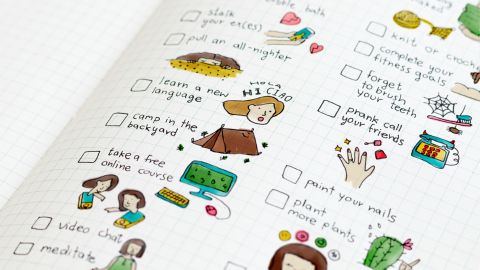 bubble bath
stalk
your ex(es)
pull an all-nighter
learn a new
language
HOLA
HI CIAO
camp in the
backyard
take a free
online course
video chat
meditate
knit or crochet
complete your
fitness goals
forget
to brush
your teeth
prank call
your friends
paint your nails
plant
more plants